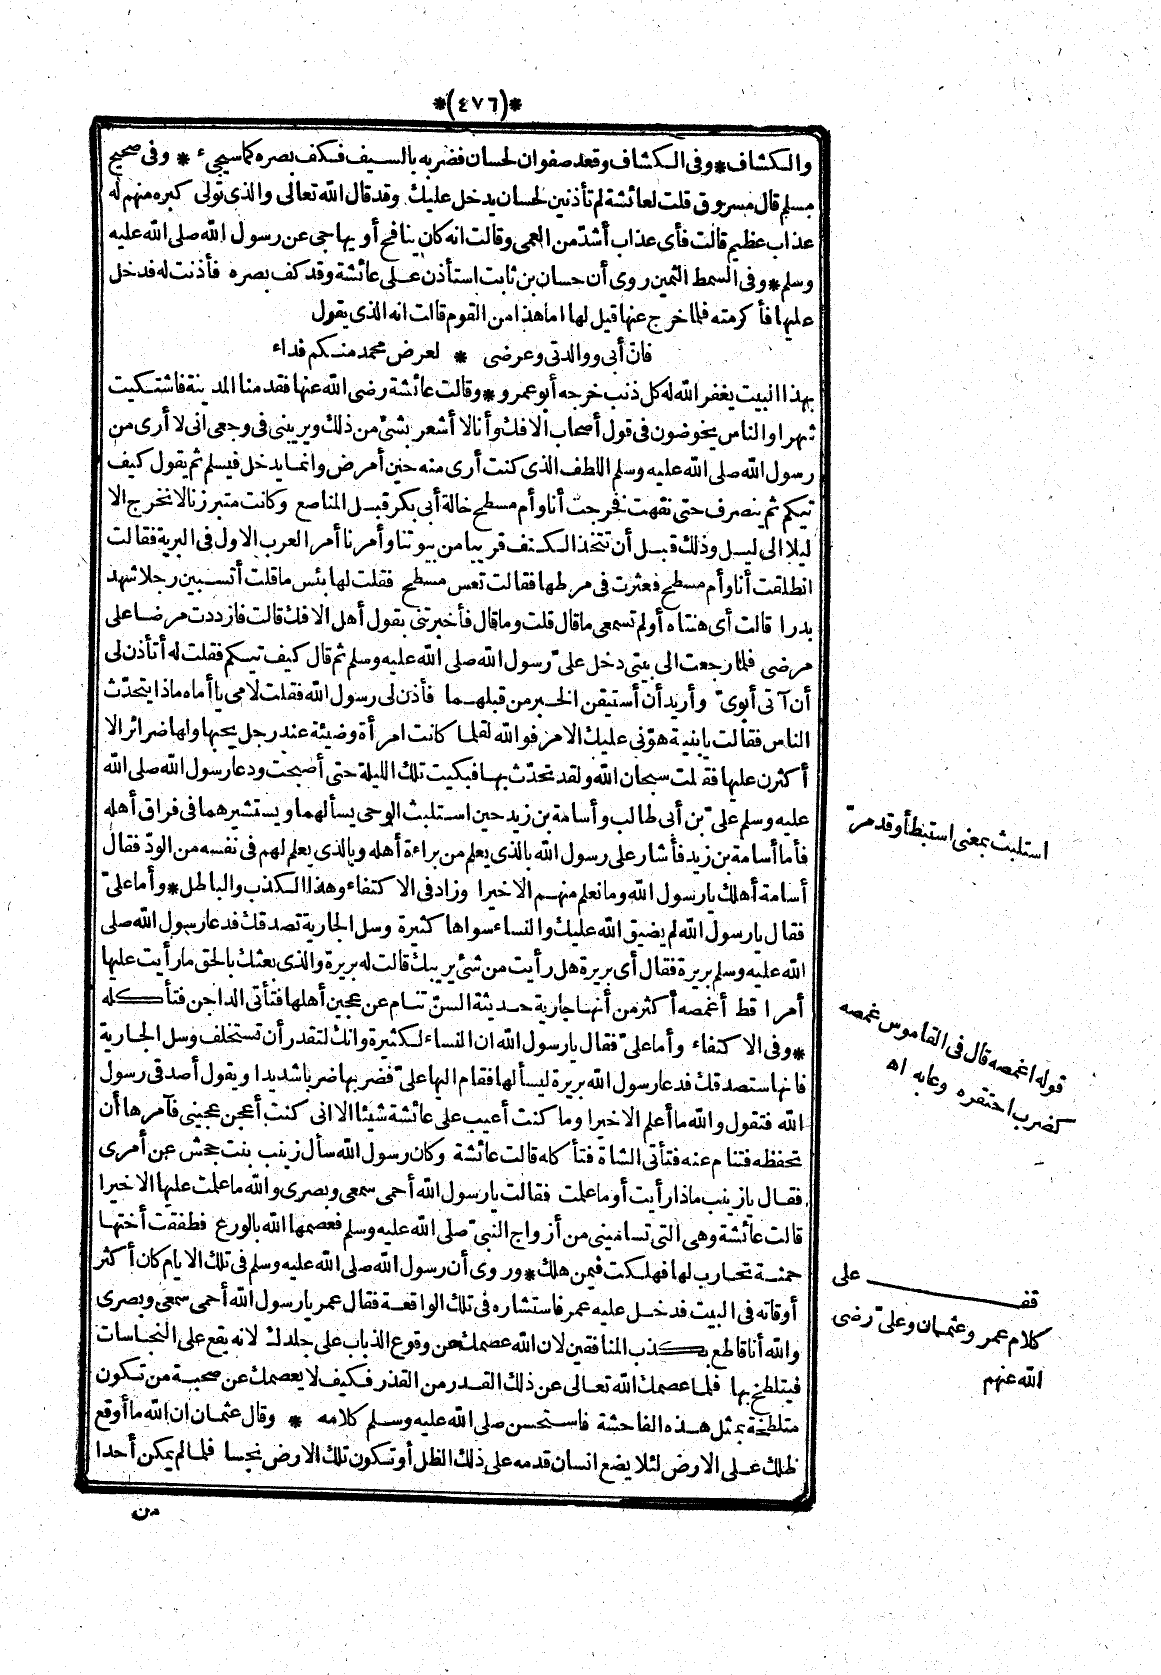 *(٤٧٦)*
والكشاف * وفى الكشاف وقعد صفوان لحسان فضربه بالسيف فكف بصره كماسيجىء * وفى صحيح
مسلم قال مسروق قلت لعائشة لم تأذنين لحسان يدخل عليك وقد قال الله تعالى والذى تولى كبره منهم له
عذاب عظيم قالت فأى عذاب أشدّ من العمى وقالت انه كان ينافح أو يهاجى عن رسول الله صلى الله عليه
وسلم * وفى السمط الثمين روى أن حسان بن ثابت استأذن على عائشة وقد كف بصره فأذنت له فدخل
عليها فأكرمته فلما خرج عنها قيل لها اما هذا من القوم قالت انه الذى يقول
فان أبى ووالدتى وعرضى * لعرض محمد منكم فداء
بهذا البيت يغفر الله له كل ذنب خرجه أبو عمرو * وقالت عائشة رضى الله عنها فقدمنا المدينة فاشتكيت
شهرا والناس يخوضون فى قول أصحاب الافك وأنا لا أشعر بشئ من ذلك ويريبنى فى وجعى انى لا أرى من
رسول الله صلى الله عليه وسلم اللطف الذى كنت أرى منه حين أمرض وانما يدخل فيسلم ثم يقول كيف
تيكم ثم ينصرف حتى نقهت فخرجت أنا وأم مسطح خالة أبى بكر قبل المناصع وكانت متبرزنا لا نخرج الا
ليلا الى ليل وذلك قبل أن تتخذ الكنف قريبا من بيوتنا وأمرنا أمر العرب الاول فى البرية فقالت
انطلقت أنا وأم مسطح فعثرت فى مرطها فقالت تعس مسطح فقلت لها بئس ما قلت أتسبين رجلا شهد
بدرا قالت أى هنتاه أولم تسمعى ما قال قلت وما قال فأخبرتنى بقول أهل الافك قالت فازددت مرضا على
مرضى فلما رجعت الى بيتى دخل علىّ رسول الله صلى الله عليه وسلم ثم قال كيف تيكم فقلت له أتأذن لى
أن آتى أبوىّ وأريد أن أستيقن الخبر من قبلهما فأذن لى رسول الله فقلت لامى يا أماه ماذا يتحدّث
الناس فقالت يا بنية هوّنى عليك الامر فوالله لقلما كانت امرأة وضيئة عند رجل يحبها ولها ضرائر الا
أكثرن عليها فقلت سبحان الله ولقد تحدّث بها فبكيت تلك الليلة حتى أصبحت ودعا رسول الله صلى الله
عليه وسلم علىّ بن أبى طالب وأسامة بن زيد حين استلبث الوحى يسألهما ويستشيرهما فى فراق أهله
فأما أسامة بن زيد فأشار على رسول الله بالذى يعلم من براءة أهله وبالذى يعلم لهم فى نفسه من الودّ فقال
أسامة أهلك يا رسول الله وما نعلم منهم الا خيرا وزاد فى الاكتفاء وهذا الكذب والباطل * وأما علىّ
فقال يا رسول الله لم يضيق الله عليك والنساء سواها كثيرة وسل الجارية تصدقك فدعا رسول الله صلى
الله عليه وسلم بريرة فقال أى بريرة هل رأيت من شئ يريبك قالت له بريرة والذى بعثك بالحق ما رأيت عليها
أمرا قط أغمصه أكثر من أنها جارية حديثة السنّ تنام عن عجين أهلها فتأتى الداجن فتأكله
* وفى الاكتفاء وأما علىّ فقال يا رسول الله ان النساء لكثيرة وانك لتقدر أن تستخلف وسل الجارية
فانها ستصدقك فدعا رسول الله بريرة ليسألها فقام اليها علىّ فضربها ضربا شديدا ويقول أصدقى رسول
الله فتقول والله ما أعلم الا خيرا وما كنت أعيب على عائشة شيئا الا انى كنت أعجن عجينى فآمرها أن
تحفظه فتنام عنه فتأتى الشاة فتأكله قالت عائشة وكان رسول الله سأل زينب بنت جحش عن أمرى
فقال يا زينب ماذا رأيت أو ما علمت فقالت يا رسول الله أحمى سمعى وبصرى والله ما علمت عليها الا خيرا
قالت عائشة وهى التى تسامينى من أزواج النبىّ صلى الله عليه وسلم فعصمها الله بالورع فطفقت أختها
حمنة تحارب لها فهلكت فيمن هلك * وروى أن رسول الله صلى الله عليه وسلم فى تلك الايام كان أكثر
أوقاته فى البيت فدخل عليه عمر فاستشاره فى تلك الواقعة فقال عمر يا رسول الله أحمى سمعى وبصرى
والله أنا قاطع بكذب المنافقين لان الله عصمك عن وقوع الذباب على جلدك لانه يقع على النجاسات
فيتلطخ بها فلما عصمك الله تعالى عن ذلك القدر من القذر فكيف لا يعصمك عن صحبة من تكون
متلطخة بمثل هذه الفاحشة فاستحسن صلى الله عليه وسلم كلامه * وقال عثمان ان الله ما أوقع
ظلك على الارض لئلا يضع انسان قدمه على ذلك الظل أو تكون تلك الارض نجسا فلما لم يمكن أحدا
من
استلبث بمعنى استبطأ وقد مرّ
قوله اغمصه قال فى القاموس غمصه
كضرب احتقره وعابه اه
قف على
كلام عمر وعثمان وعلىّ رضى
الله عنهم